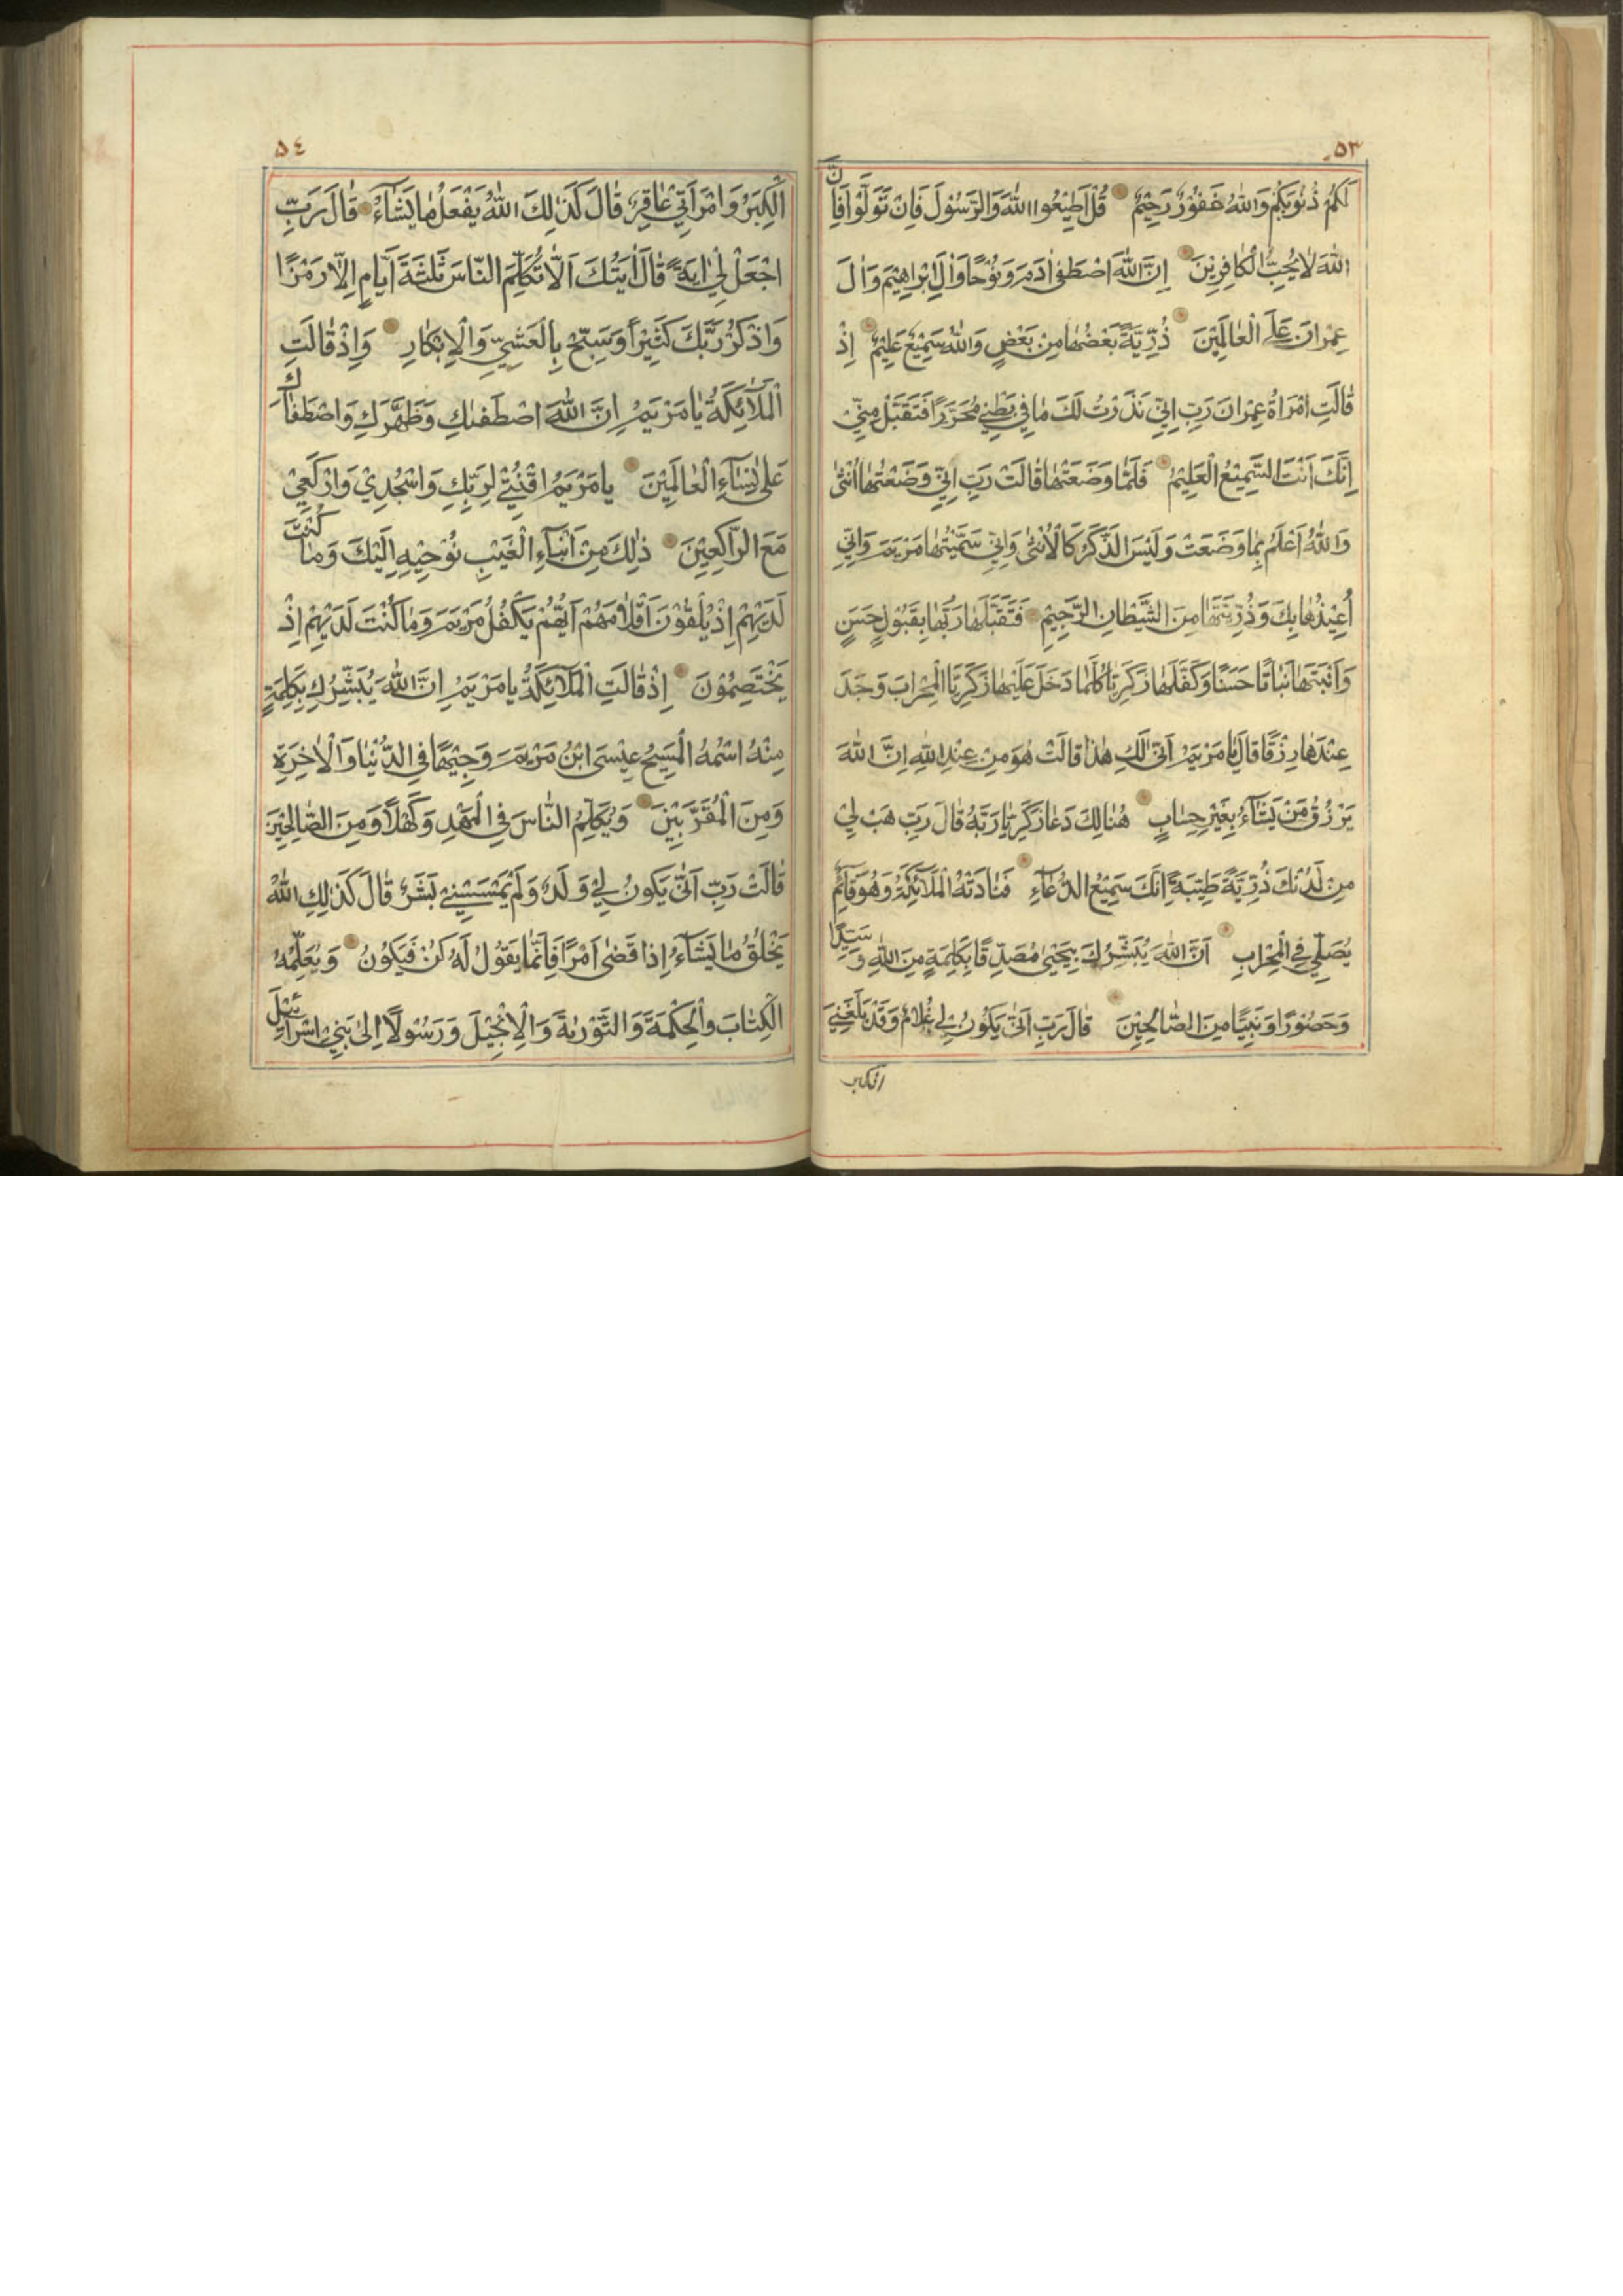 ٥٣
لَكُمْ ذُنُوبَكُمْ وَاللهُ غَفُوْرٌ رَحِيْمٌ قُلْ اَطِيْعُوا اللهَ وَالرَّسُوْلَ فَاِنْ تَوَلَّوْا فَاِنَّ
اللهَ لَا يُحِبُّ الْكَافِرِيْنَ اِنَّ اللهَ اصْطَفٰى اٰدَمَ وَنُوْحًا وَاٰلَ اِبْرَاهِيْمَ وَاٰلَ
عِمْرَانَ عَلَى الْعَالَمِيْنَ ذُرِّيَّةً بَعْضُهَا مِنْ بَعْضٍ وَاللهُ سَمِيْعٌ عَلِيْمٌ اِذْ
قَالَتِ امْرَاَةُ عِمْرَانَ رَبِّ اِنِّي نَذَرْتُ لَكَ مَا فِي بَطْنِي مُحَرَّرًا فَتَقَبَّلْ مِنِّي
اِنَّكَ اَنْتَ السَّمِيْعُ الْعَلِيْمُ فَلَمَّا وَضَعَتْهَا قَالَتْ رَبِّ اِنِّي وَضَعْتُهَا اُنْثٰى
وَاللهُ اَعْلَمُ بِمَا وَضَعَتْ وَلَيْسَ الذَّكَرُ كَالْاُنْثٰى وَاِنِّي سَمَّيْتُهَا مَرْيَمَ وَاِنِّي
اُعِيْذُهَا بِكَ وَذُرِّيَّتَهَا مِنَ الشَّيْطَانِ الرَّجِيْمِ فَتَقَبَّلَهَا رَبُّهَا بِقَبُوْلٍ حَسَنٍ
وَاَنْبَتَهَا نَبَاتًا حَسَنًا وَكَفَّلَهَا زَكَرِيَّا كُلَّمَا دَخَلَ عَلَيْهَا زَكَرِيَّا الْمِحْرَابَ وَجَدَ
عِنْدَهَا رِزْقًا قَالَ يَا مَرْيَمُ اَنّٰى لَكِ هٰذَا قَالَتْ هُوَ مِنْ عِنْدِ اللهِ اِنَّ اللهَ
يَرْزُقُ مَنْ يَشَآءُ بِغَيْرِ حِسَابٍ هُنَالِكَ دَعَا زَكَرِيَّا رَبَّهُ قَالَ رَبِّ هَبْ لِيْ
مِنْ لَدُنْكَ ذُرِّيَّةً طَيِّبَةً اِنَّكَ سَمِيْعُ الدُّعَآءِ فَنَادَتْهُ الْمَلَآئِكَةُ وَهُوَ قَآئِمٌ
يُصَلِّي فِي الْمِحْرَابِ اَنَّ اللهَ يُبَشِّرُكَ بِيَحْيٰى مُصَدِّقًا بِكَلِمَةٍ مِنَ اللهِ وَسَيِّدًا
وَحَصُوْرًا وَنَبِيًّا مِنَ الصَّالِحِيْنَ قَالَ رَبِّ اَنّٰى يَكُوْنُ لِي غُلَامٌ وَقَدْ بَلَغَنِيَ
الكبر
٥٤
الْكِبَرُ وَامْرَاَتِي عَاقِرٌ قَالَ كَذٰلِكَ اللهُ يَفْعَلُ مَا يَشَآءُ قَالَ رَبِّ
اجْعَلْ لِيْ اٰيَةً قَالَ اٰيَتُكَ اَلَّا تُكَلِّمَ النَّاسَ ثَلٰثَةَ اَيَّامٍ اِلَّا رَمْزًا
وَاذْكُرْ رَبَّكَ كَثِيْرًا وَسَبِّحْ بِالْعَشِيِّ وَالْاِبْكَارِ وَاِذْ قَالَتِ
الْمَلَآئِكَةُ يَا مَرْيَمُ اِنَّ اللهَ اصْطَفٰىكِ وَطَهَّرَكِ وَاصْطَفَاكِ
عَلٰى نِسَآءِ الْعَالَمِيْنَ يَا مَرْيَمُ اقْنُتِي لِرَبِّكِ وَاسْجُدِيْ وَارْكَعِيْ
مَعَ الرَّاكِعِيْنَ ذٰلِكَ مِنْ اَنْبَآءِ الْغَيْبِ نُوْحِيْهِ اِلَيْكَ وَمَا كُنْتَ
لَدَيْهِمْ اِذْ يُلْقُوْنَ اَقْلَامَهُمْ اَيُّهُمْ يَكْفُلُ مَرْيَمَ وَمَا كُنْتَ لَدَيْهِمْ اِذْ
يَخْتَصِمُوْنَ اِذْ قَالَتِ الْمَلَآئِكَةُ يَا مَرْيَمُ اِنَّ اللهَ يُبَشِّرُكِ بِكَلِمَةٍ
مِنْهُ اسْمُهُ الْمَسِيْحُ عِيْسَى ابْنُ مَرْيَمَ وَجِيْهًا فِي الدُّنْيَا وَالْاٰخِرَةِ
وَمِنَ الْمُقَرَّبِيْنَ وَيُكَلِّمُ النَّاسَ فِي الْمَهْدِ وَكَهْلًا وَمِنَ الصَّالِحِيْنَ
قَالَتْ رَبِّ اَنّٰى يَكُوْنُ لِي وَلَدٌ وَلَمْ يَمْسَسْنِي بَشَرٌ قَالَ كَذٰلِكِ اللهُ
يَخْلُقُ مَا يَشَآءُ اِذَا قَضٰى اَمْرًا فَاِنَّمَا يَقُوْلُ لَهُ كُنْ فَيَكُوْنُ وَيُعَلِّمُهُ
الْكِتَابَ وَالْحِكْمَةَ وَالتَّوْرٰىةَ وَالْاِنْجِيْلَ وَرَسُوْلًا اِلٰى بَنِيْ اِسْرَآئِيْلَ